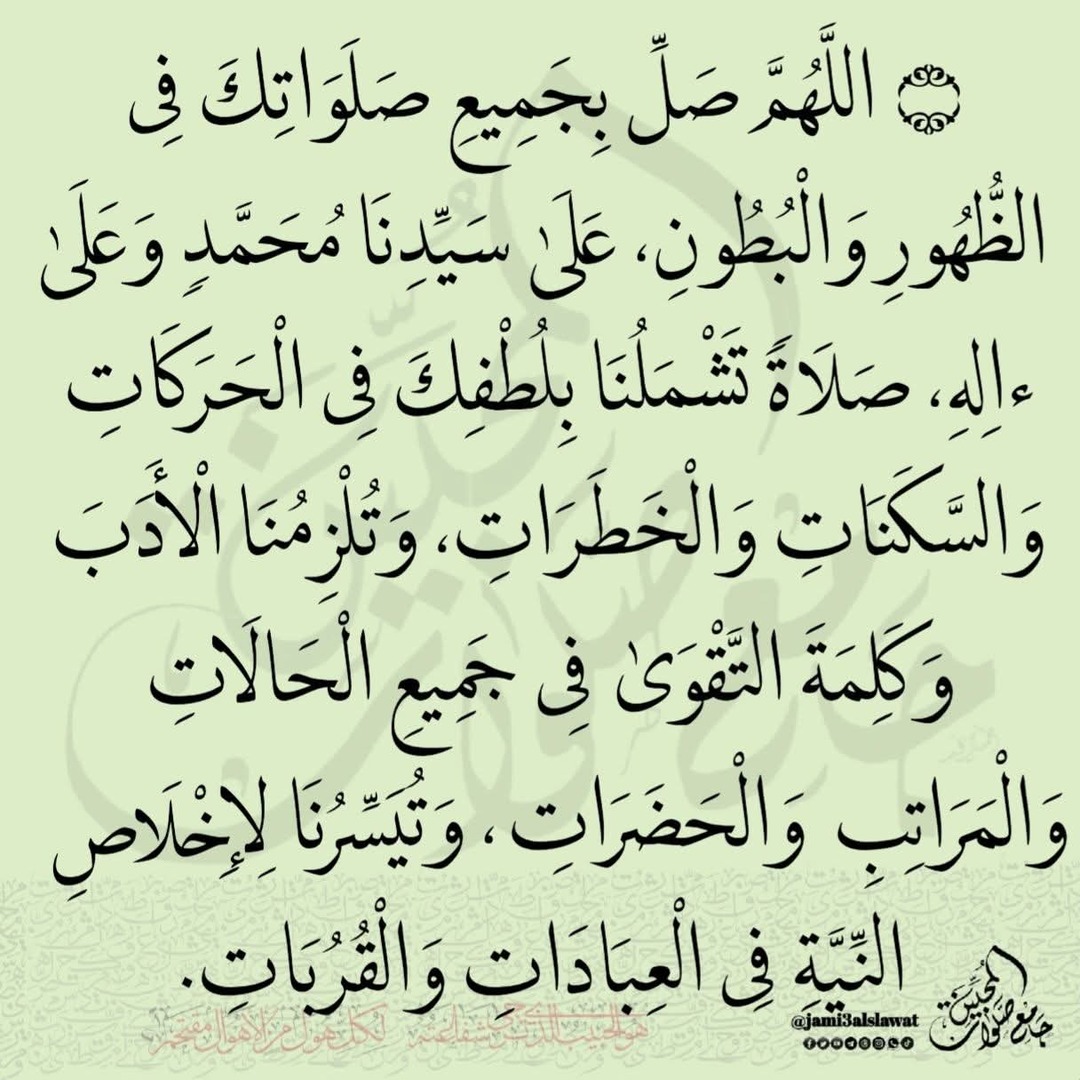 اللَّهُمَّ صَلِّ بِجَمِيعِ صَلَوَاتِكَ فِى
الظُّهُورِ وَالْبُطُونِ، عَلَىٰ سَيِّدِنَا مُحَمَّدٍ وَعَلَىٰ
ءالِهِ، صَلَاةً تَشْمَلُنَا بِلُطْفِكَ فِى الْحَرَكَاتِ
وَالسَّكَنَاتِ وَالْخَطَرَاتِ، وَتُلْزِمُنَا الْأَدَبَ
وَكَلِمَةَ التَّقْوَىٰ فِى جَمِيعِ الْحَالَاتِ
وَالْمَرَاتِبِ وَالْحَضَرَاتِ، وَتُيَسِّرُنَا لِإِخْلَاصِ
النِّيَّةِ فِى الْعِبَادَاتِ وَالْقُرُبَاتِ.
جامع صلوات المحبين
@jami3alslawat
هو الحبيب الذى ترجى شفاعته لكل هول من الأهوال مقتحم